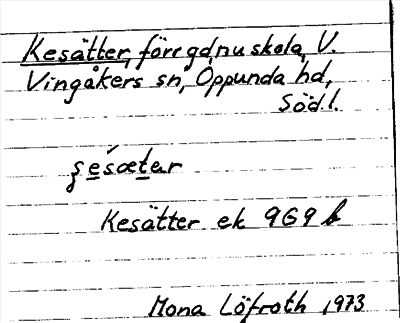 Kesätter, förr gd, nu skola, V.
Vingåkers sn, Oppunda hd,
Söd.l.
ʂésætər
Kesätter ek 9G9 b
Mona Löfroth 1973